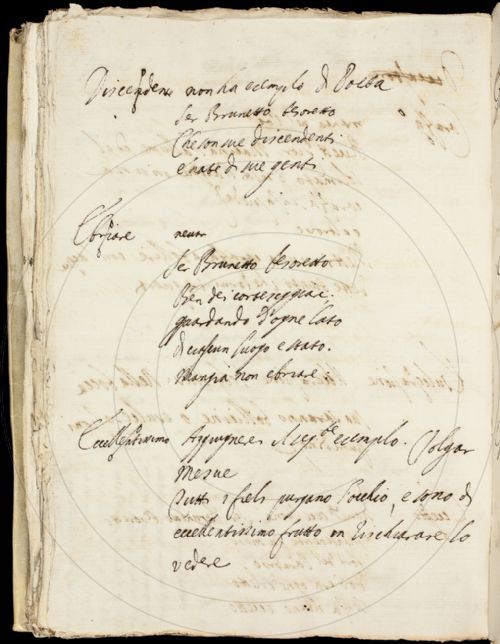 Discendente non ha esemplo di Poeta
Ser Brunetto tesoretto
Che son sue discendenti
e nate di sue genti
Ebriare neutr
Ser Brunetto tesoretto
Ben dei corteseggiar.
guardando d'ogne lato
di ciascun luogo e stato.
mangia non ebriar.
Eccellentissimo Aggiugner esemplo. Volgar
Mesue
Tutti i fieli purgano l'occhio, e sono di
eccellentissimo frutto in rischiarare lo
vedere